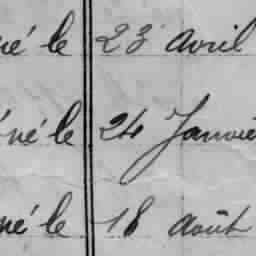 né le 23 avril
né le 24 Janvie
né le 18 août